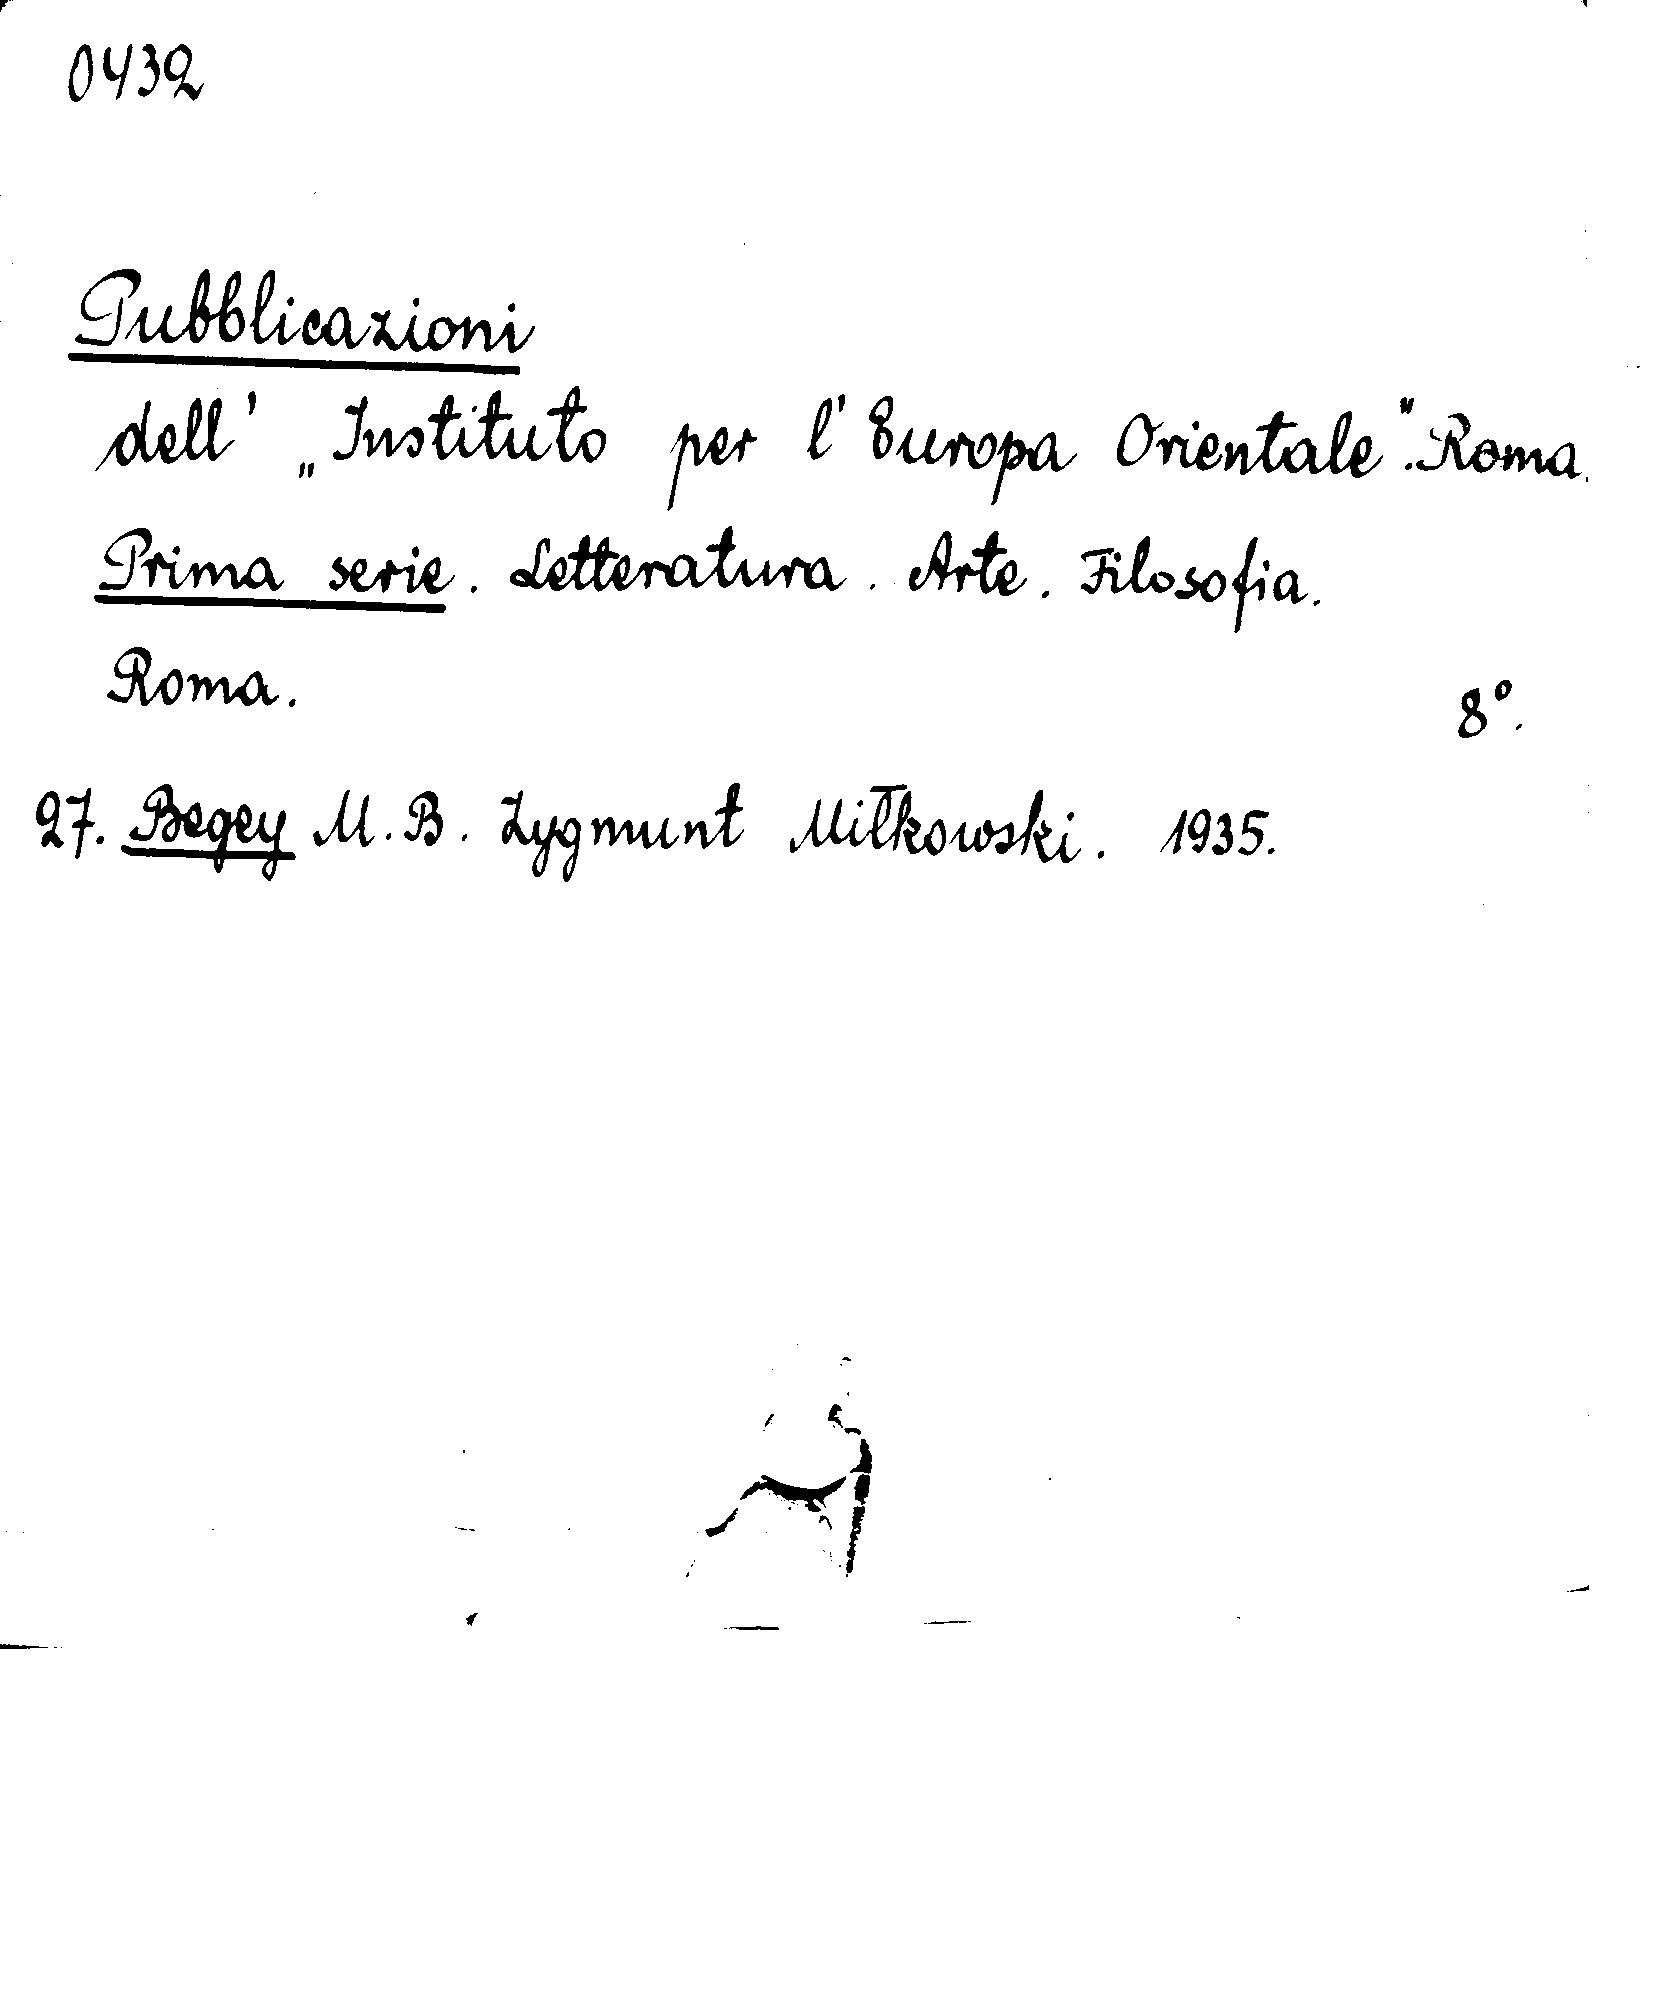 0432
Pubblicazioni
dell' „Instituto per l'Europa Orientale". Roma.
Prima serie. Letteratura. Arte. Filosofia.
Roma.
8°.
27. Begey M. B. Zygmunt Miłkowski. 1935.